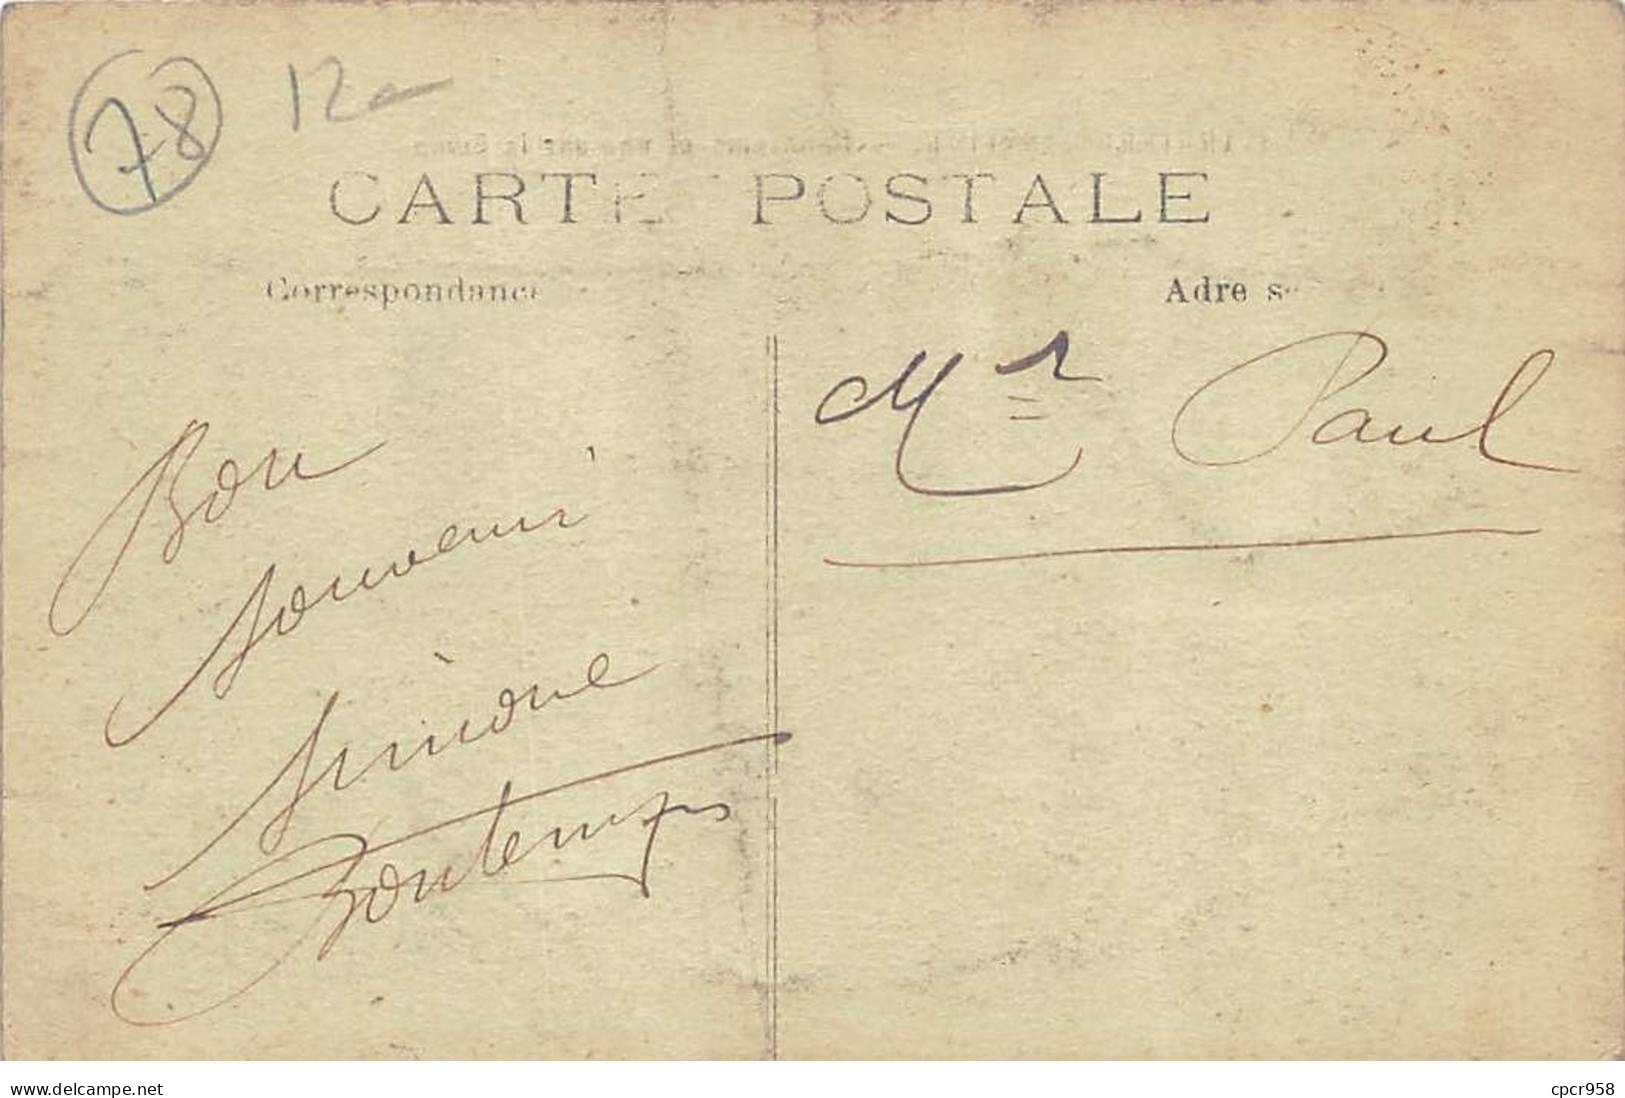 78 12
CARTE POSTALE
Correspondance
Adresse
Mr Paul
Bon
souvenir
Simone
Bontemps
www.delcampe.net
cpcr958